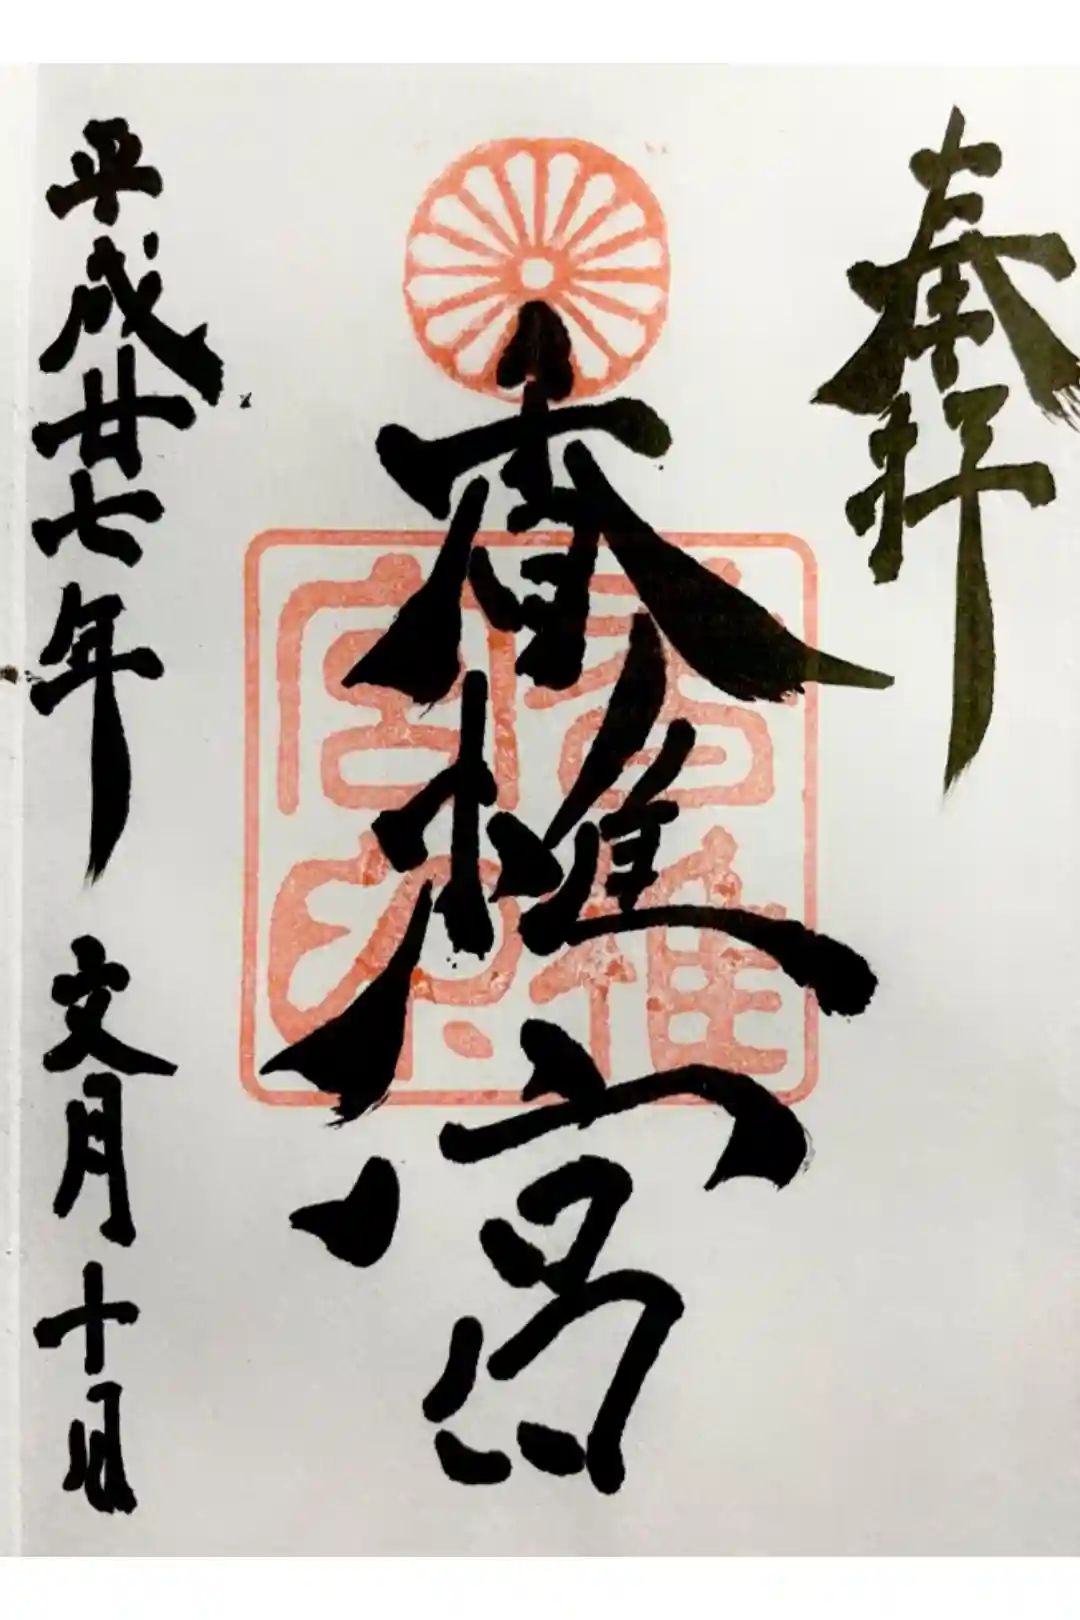 奉拝
香椎宮
平成廿七年 文月 十日
香椎
宮印